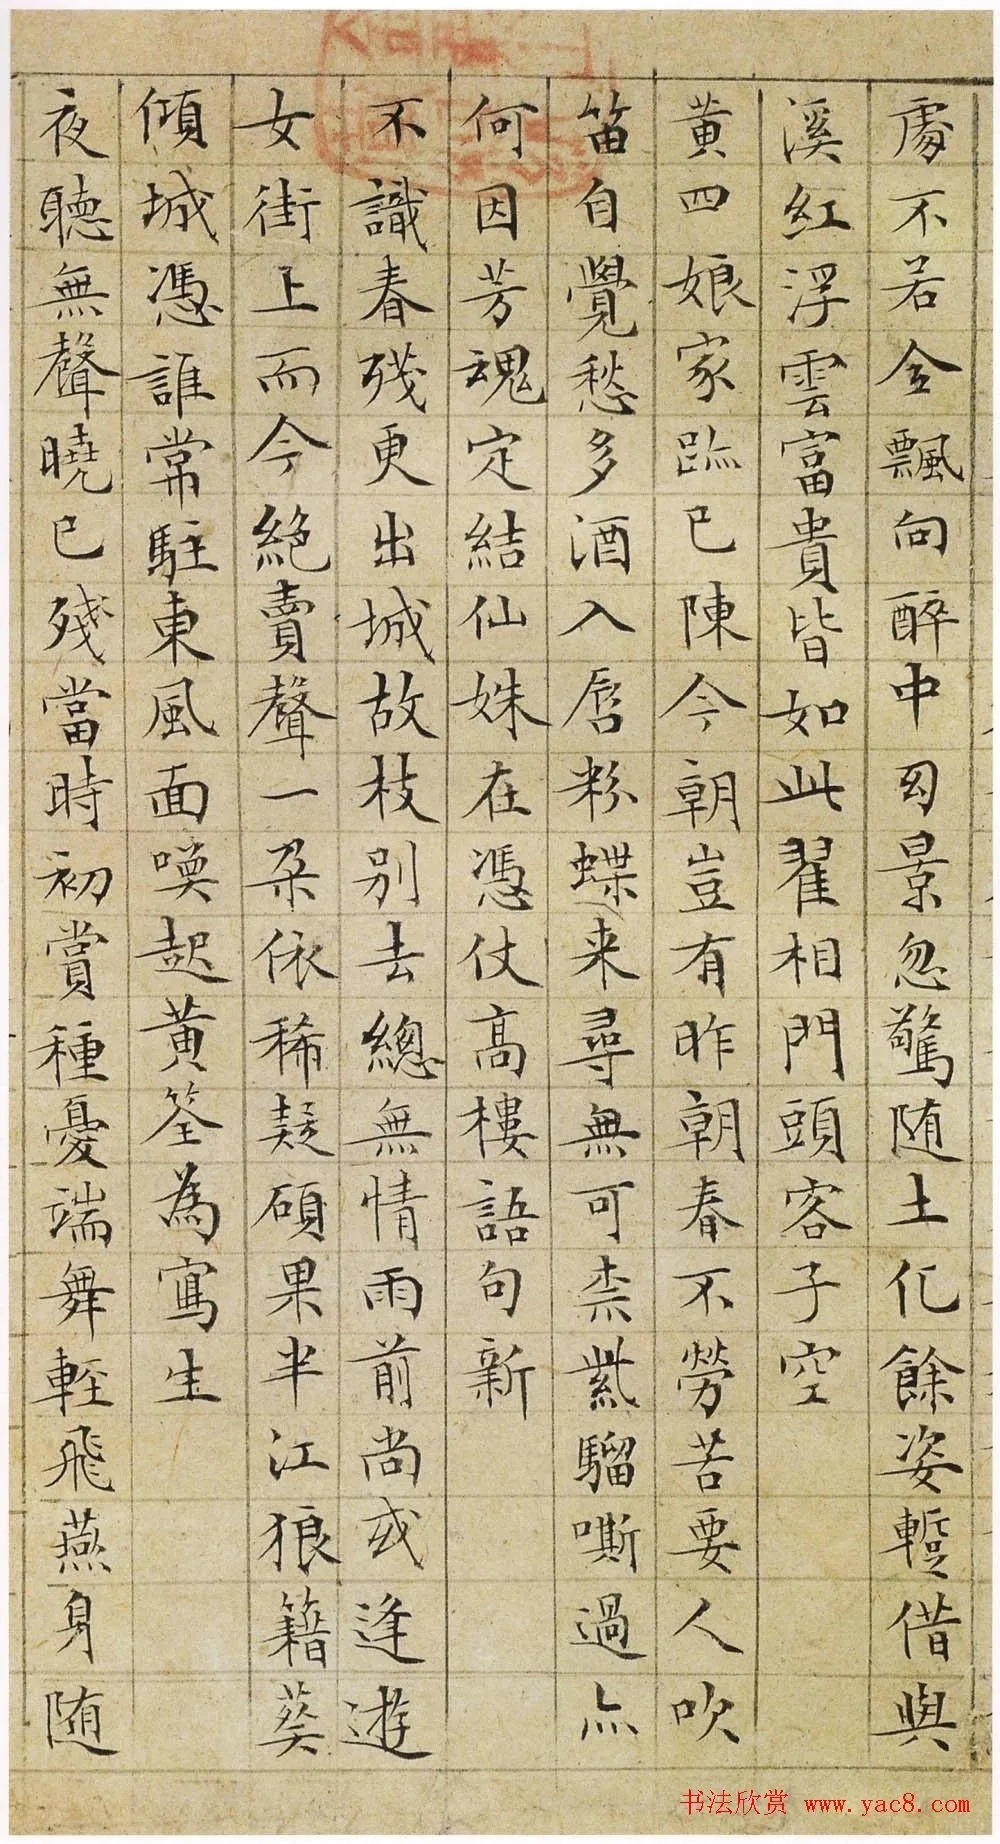 處不若金飄向醉中囟景忽驚随土化餘姿蹔借與
溪紅浮雲富貴皆如此翟相門頭客子空
黄四娘家跡已陳今朝豈有昨朝春不勞苦要人吹
笛自覺愁多酒入唇粉蝶来尋無可柰紫騮嘶過亦
何因芳魂定結仙姝在憑仗高樓語句新
不識春殘更出城故枝别去總無情雨前尚或逢遊
女街上而今絶賣聲一朶依稀疑碩果半江狼籍葵
傾城憑誰常駐東風面喚起黄筌為寫生
夜聽無聲曉已殘當時初賞種憂端舞輕飛燕身随
书法欣赏 www.yac8.com